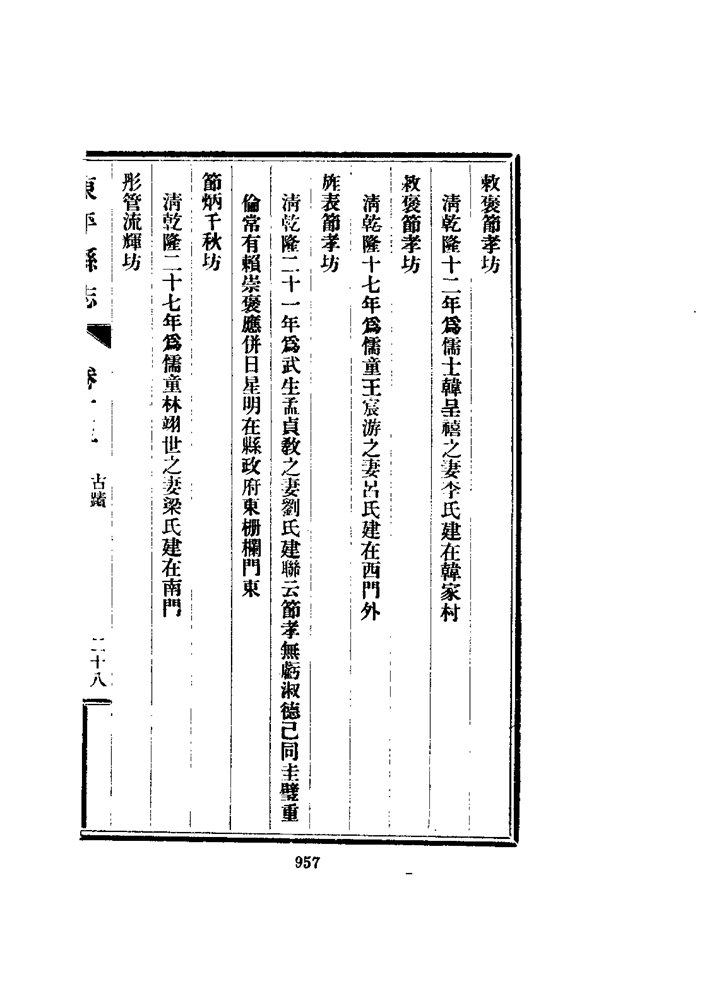 敕褒節孝坊
清乾隆十二年爲儒士韓呈禧之妻李氏建在韓家村
敕褒節孝坊
清乾隆十七年爲儒童王宸游之妻呂氏建在西門外
旌表節孝坊
清乾隆二十一年爲武生孟貞教之妻劉氏建聯云節孝無虧淑德已同圭璧重
倫常有賴崇褒應併日星明在縣政府東柵欄門東
節炳千秋坊
清乾隆二十七年爲儒童林翊世之妻梁氏建在南門
彤管流輝坊
東平縣志 卷十五 古蹟 二十八
957